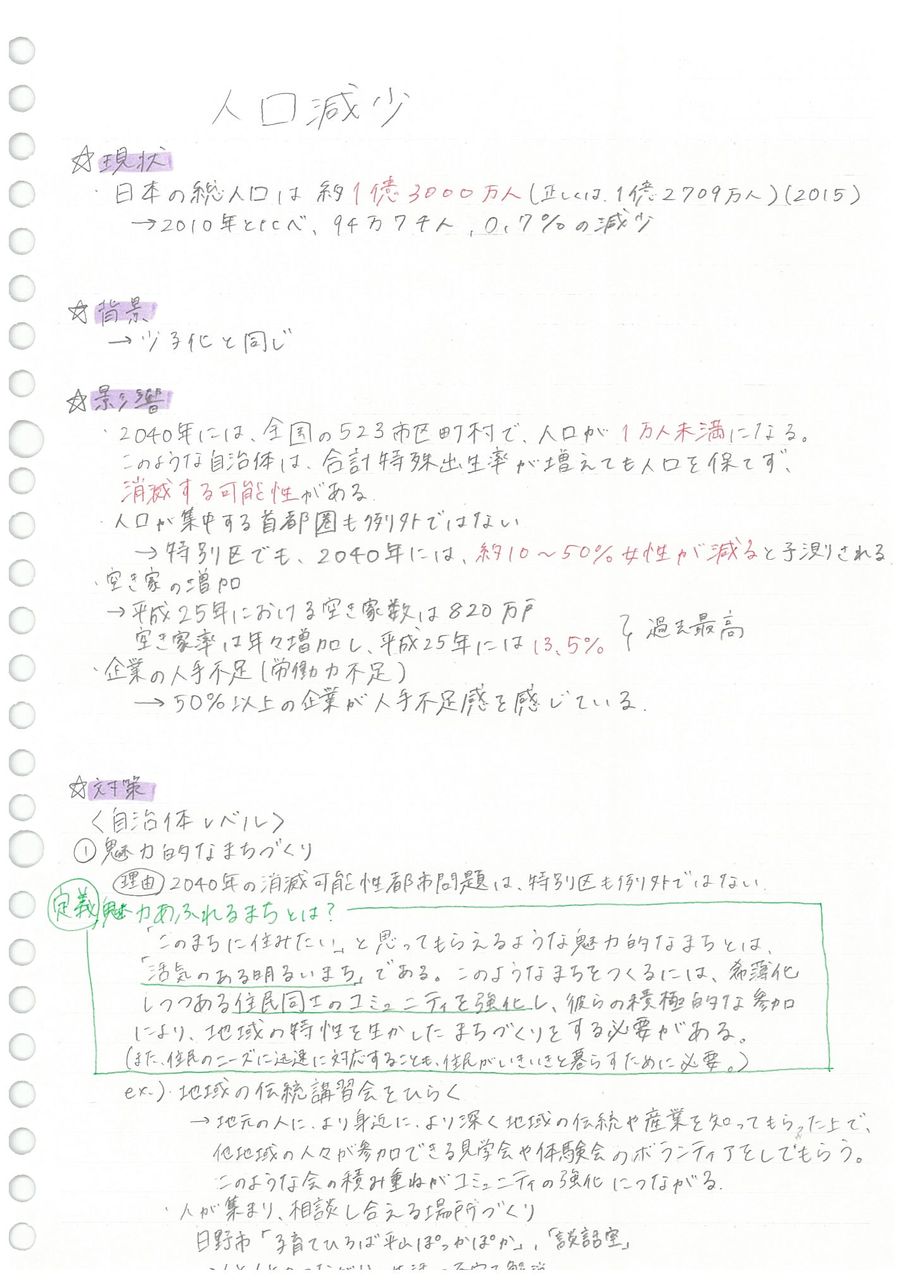 人口減少
☆現状
・日本の総人口は約1億3000万人(正しくは、1億2709万人)(2015)
→2010年と比べ、94万7千人、0.7%の減少
☆背景
→少子化と同じ
☆影響
・2040年には、全国の523市区町村で、人口が1万人未満になる。
このような自治体は、合計特殊出生率が増えても人口を保てず、
消滅する可能性がある.
・人口が集中する首都圏も例外ではない
→特別区でも、2040年には、約10~50%女性が減ると予測される
・空き家の増加
→平成25年における空き家数は820万戸
空き家率は年々増加し、平成25年には13.5% } 過去最高
・企業の人手不足(労働力不足)
→50%以上の企業が人手不足感を感じている.
☆対策
<自治体レベル>
①魅力的なまちづくり
理由 2040年の消滅可能性都市問題は、特別区も例外ではない.
定義 魅力あふれるまちとは?
「このまちに住みたい」と思ってもらえるような魅力的なまちとは、
「活気のある明るいまち」である。このようなまちをつくるには、希薄化
しつつある住民同士のコミュニティを強化し、彼らの積極的な参加
により、地域の特性を生かしたまちづくりをする必要がある。
(また、住民のニーズに迅速に対応することも、住民がいきいきと暮らすために必要。)
ex.)・地域の伝統講習会をひらく
→地元の人に、より身近に、より深く地域の伝統や産業を知ってもらった上で、
他地域の人々が参加できる見学会や体験会のボランティアをしてもらう。
このような会の積み重ねがコミュニティの強化につながる.
・人が集まり、相談し合える場所づくり
日野市「子育てひろば平山ぽっかぽか」、「談話室」